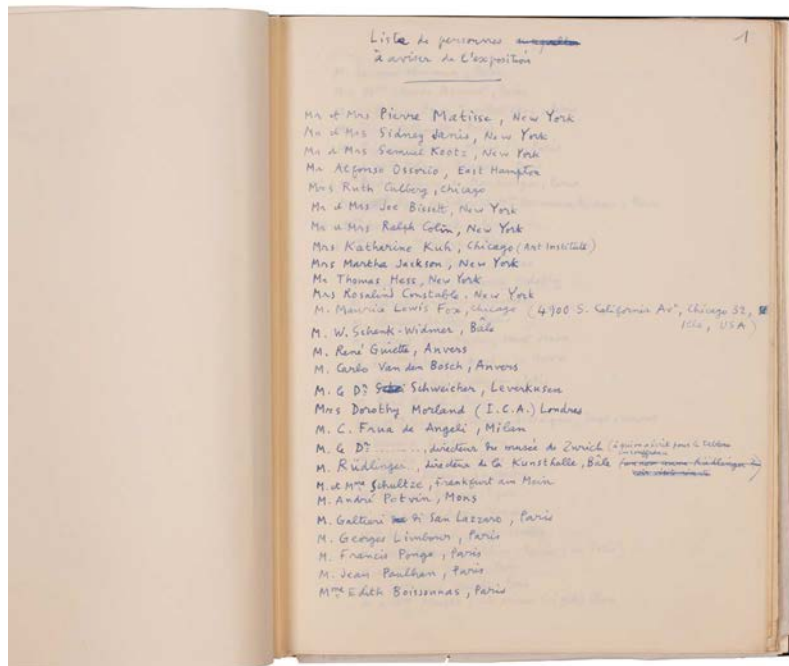 1
Liste de personnes
à aviser de l'exposition
Mr et Mrs Pierre Matisse, New York
Mr et Mrs Sidney Janis, New York
Mr et Mrs Samuel Kootz, New York
Mr Alfonso Ossorio, East Hampton
Mrs Ruth Culberg, Chicago
Mr et Mrs Joe Bissett, New York
Mr et Mrs Ralph Colin, New York
Mrs Katharine Kuh, Chicago (Art Institute)
Mrs Martha Jackson, New York
Mr Thomas Hess, New York
Mrs Rosalind Constable. New York
M. Maurice Lewis Fox, Chicago (4900 S. California Ave, Chicago 32,
Ills, USA)
M. W. Schenk-Widmer, Bâle
M. René Guiette, Anvers
M. Carlo Van den Bosch, Anvers
M. le Dr Schweicher, Leverkusen
Mrs Dorothy Morland (I.C.A.) Londres
M. C. Frua de Angeli, Milan
M. le Dr ........., directeur du musée de Zurich (à qui on a écrit pour le tableau
M. Rüdlinger, directeur de la Kunsthalle, Bâle
M. et Mme Schultze, Frankfurt am Main
M. André Potvin, Mons
M. Galtieri di San Lazzaro, Paris
M. Georges Limbour, Paris
M. Francis Ponge, Paris
M. Jean Paulhan, Paris
Mme Edith Boissonnas, Paris